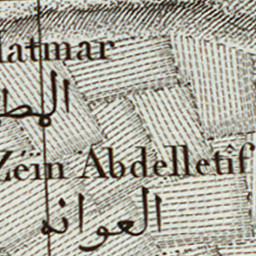 latmar
المط
Zëïn Abdelletîf
العوانه